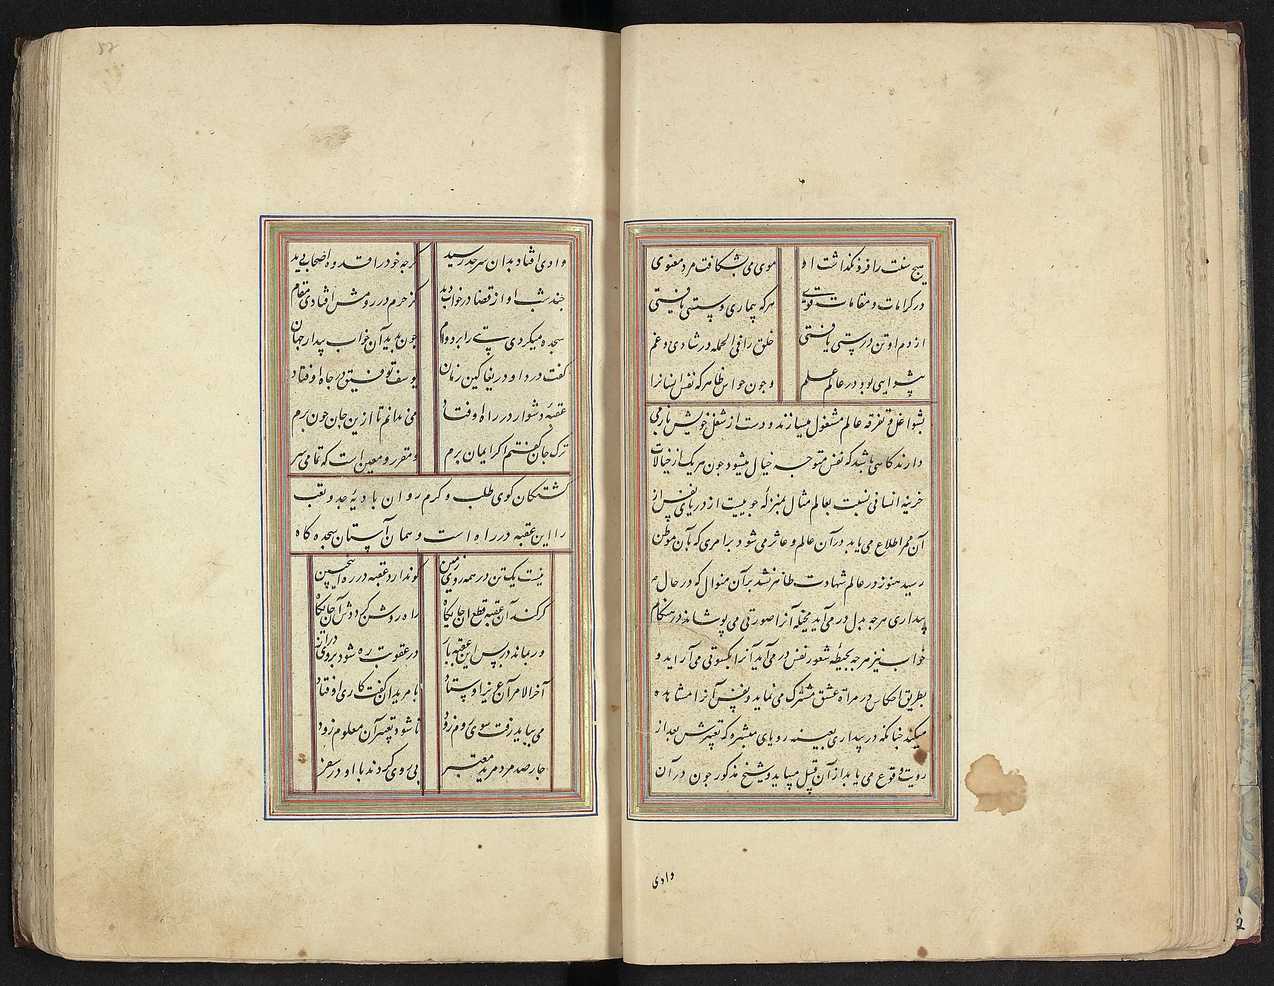 هیچ سنت را فرو نگذاشت او
موی می بشکافت مرد معنوی
در کرامات و مقامات قوی
هرکه بیماری و سستی یافتی
از دم او تن درستی یافتی
خلق را فی الجمله در شادی و غم
پیشوایی بود در عالم علم
و چون حواس ظاهر که نفس انسانرا
بشواغل و تفرقه عالم مشغول میسازند و دست از شغل خویش باز می
دارند گاهی باشد که نفس متوجه خیال میشود چون هر یک از خیالات
انسانی نسبت بعالم مثال بمنزله جوییست از دریای نفس از
آن ممر اطلاع می یابد در آن عالم و عاثر می شود بر امری که بآن موطن
رسیده هنوز در عالم شهادت ظاهر نشد بر آن منوال که در حال
بیداری هرچه بدل در می آید مخیله آنرا صورتی می پوشاند در هنگام
خواب نیز هرچه بحیطه شعور نفس در می آید آنرا بکسوتی می آراید و
بطریق انعکاس در مرآة مشترک می نماید و نفس آنرا مشاهده
میکند چنانکه در بیداری بعینه رویای مبشره که تعبیرش بعد از
رویت وقوع می یابد از آن قبیل میباید و شیخ مذکور چون در آن
وادی
۵۲
وادی افتاد بدان سرحد رسید
گرچه خود را قدوه اصحاب دید
چند شب او از قضا در خواب دید
کز حرم در رومش افتادی مقام
سجده میکردی بتی را بر دوام
چون بدید آن خواب بیدار جهان
گفت دردا و دریغا کین زمان
یوسف توفیق در چاه اوفتاد
عقبه دشوار در راه اوفتاد
می ندانم تا ازین جان چون برم
ترک جان گفتم اگر ایمان برم
و مقرر و معین است که تمامی سر
گشتگان کوی طلب و گرم روان بادیه جد و تعب
را این عقبه در راه است و همان آستان سجده گاه
نیست یک تن در همه روی زمین
کو ندارد عقبه در ره اینچنین
گر کند آن عقبه قطع اینجایگاه
راه روشن گرددش تا پیشگاه
ور بماند در پس این عقبه باز
در عقوبت ره شود بر وی دراز
آخر الامر آن عزیز اوستاد
با مریدان گفت کاری اوفتاد
می بباید رفت سوی روم زود
تا شود تعبیر آن معلوم زود
چارصد مرد مرید معتبر
پی روی کردند با او در سفر